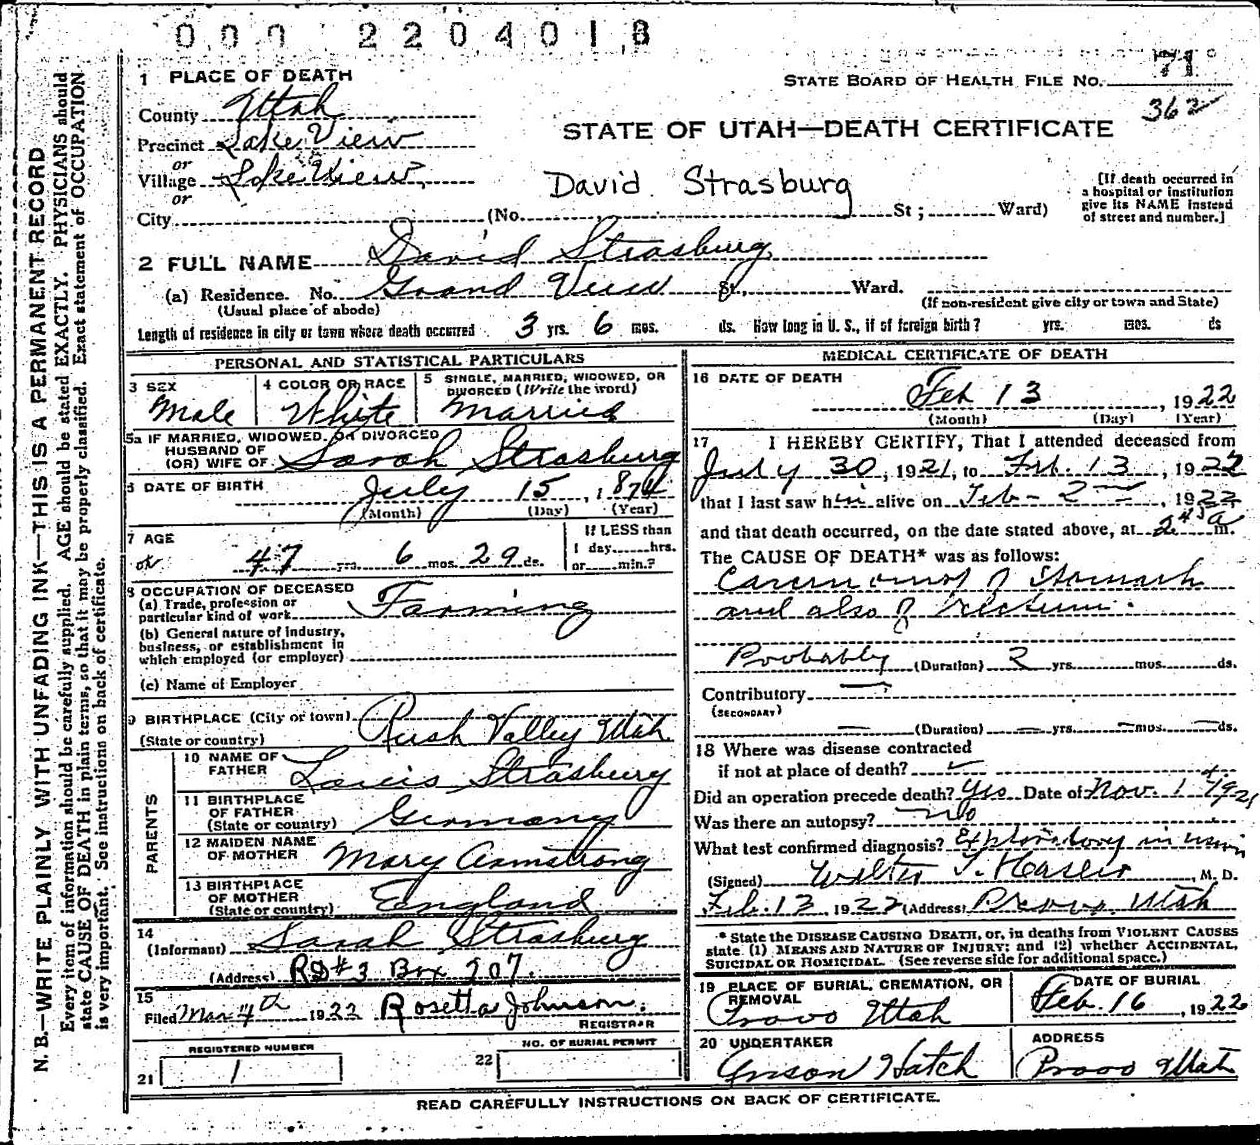 000 2204018
1 PLACE OF DEATH
STATE BOARD OF HEALTH FILE NO. 71
362
County Utah
Precinct Lake View
or
Village Lake View
or
City (No. St ; Ward)
STATE OF UTAH—DEATH CERTIFICATE
David Strasburg
[If death occurred in
a hospital or institution
give its NAME instead
of street and number.]
2 FULL NAME David Strasburg
(a) Residence. No. Grand View St., Ward.
(Usual place of abode)
(If non-resident give city or town and State)
Length of residence in city or town where death occurred 3 yrs. 6 mos. ds. How long in U. S., if of foreign birth? yrs. mos. ds
N. B.—WRITE PLAINLY WITH UNFADING INK—THIS IS A PERMANENT RECORD
Every item of information should be carefully supplied. AGE should be stated EXACTLY. PHYSICIANS should
state CAUSE OF DEATH in plain terms, so that it may be properly classified. Exact statement of OCCUPATION
is very important. See instructions on back of certificate.
PERSONAL AND STATISTICAL PARTICULARS
3 SEX
Male
4 COLOR OR RACE
White
5 SINGLE, MARRIED, WIDOWED, OR
DIVORCED (Write the word)
Married
5a IF MARRIED, WIDOWED, OR DIVORCED
HUSBAND OF
(OR) WIFE OF Sarah Strasburg
6 DATE OF BIRTH July 15, 1874
(Month) (Day) (Year)
7 AGE
ok 47 yrs. 6 mos. 29 ds.
If LESS than
1 day hrs.
or min.?
8 OCCUPATION OF DECEASED
(a) Trade, profession or
particular kind of work Farming
(b) General nature of industry,
business, or establishment in
which employed (or employer)
(c) Name of Employer
9 BIRTHPLACE (City or town) Rush Valley Utah
(State or country)
PARENTS
10 NAME OF
FATHER Louis Strasburg
11 BIRTHPLACE
OF FATHER
(State or country) Germany
12 MAIDEN NAME
OF MOTHER Mary Armstrong
13 BIRTHPLACE
OF MOTHER
(State or country) England
14
(Informant) Sarah Strasburg
(Address) RD#3 Box 207.
15
Filed Mar 4th 1922 Rosetta Johnson.
REGISTRAR
REGISTERED NUMBER
21 1
NO. OF BURIAL PERMIT
22
MEDICAL CERTIFICATE OF DEATH
16 DATE OF DEATH
Feb 13, 1922
(Month) (Day) (Year)
17 I HEREBY CERTIFY, That I attended deceased from
July 30, 1921, to Feb. 13, 1922
that I last saw him alive on Feb - 2nd, 1922
and that death occurred, on the date stated above, at 2 45 a m.
The CAUSE OF DEATH* was as follows:
Carcinoma of Stomach
and also of rectum.
Probably (Duration) 2 yrs. mos. ds.
Contributory —
(SECONDARY)
— (Duration) — yrs. — mos. — ds.
18 Where was disease contracted
if not at place of death? ✓
Did an operation precede death? Yes Date of Nov. 1 1921
Was there an autopsy? No
What test confirmed diagnosis? Exploratory incision
(Signed) Walter T. Hasler, M. D.
Feb. 13, 1922 (Address) Provo, Utah
* State the DISEASE CAUSING DEATH, or, in deaths from VIOLENT CAUSES
state (1) MEANS AND NATURE OF INJURY; and (2) whether ACCIDENTAL,
SUICIDAL OR HOMICIDAL. (See reverse side for additional space.)
19 PLACE OF BURIAL, CREMATION, OR
REMOVAL
Provo Utah
DATE OF BURIAL
Feb. 16, 1922
20 UNDERTAKER
Hatch
ADDRESS
Provo Utah
READ CAREFULLY INSTRUCTIONS ON BACK OF CERTIFICATE.